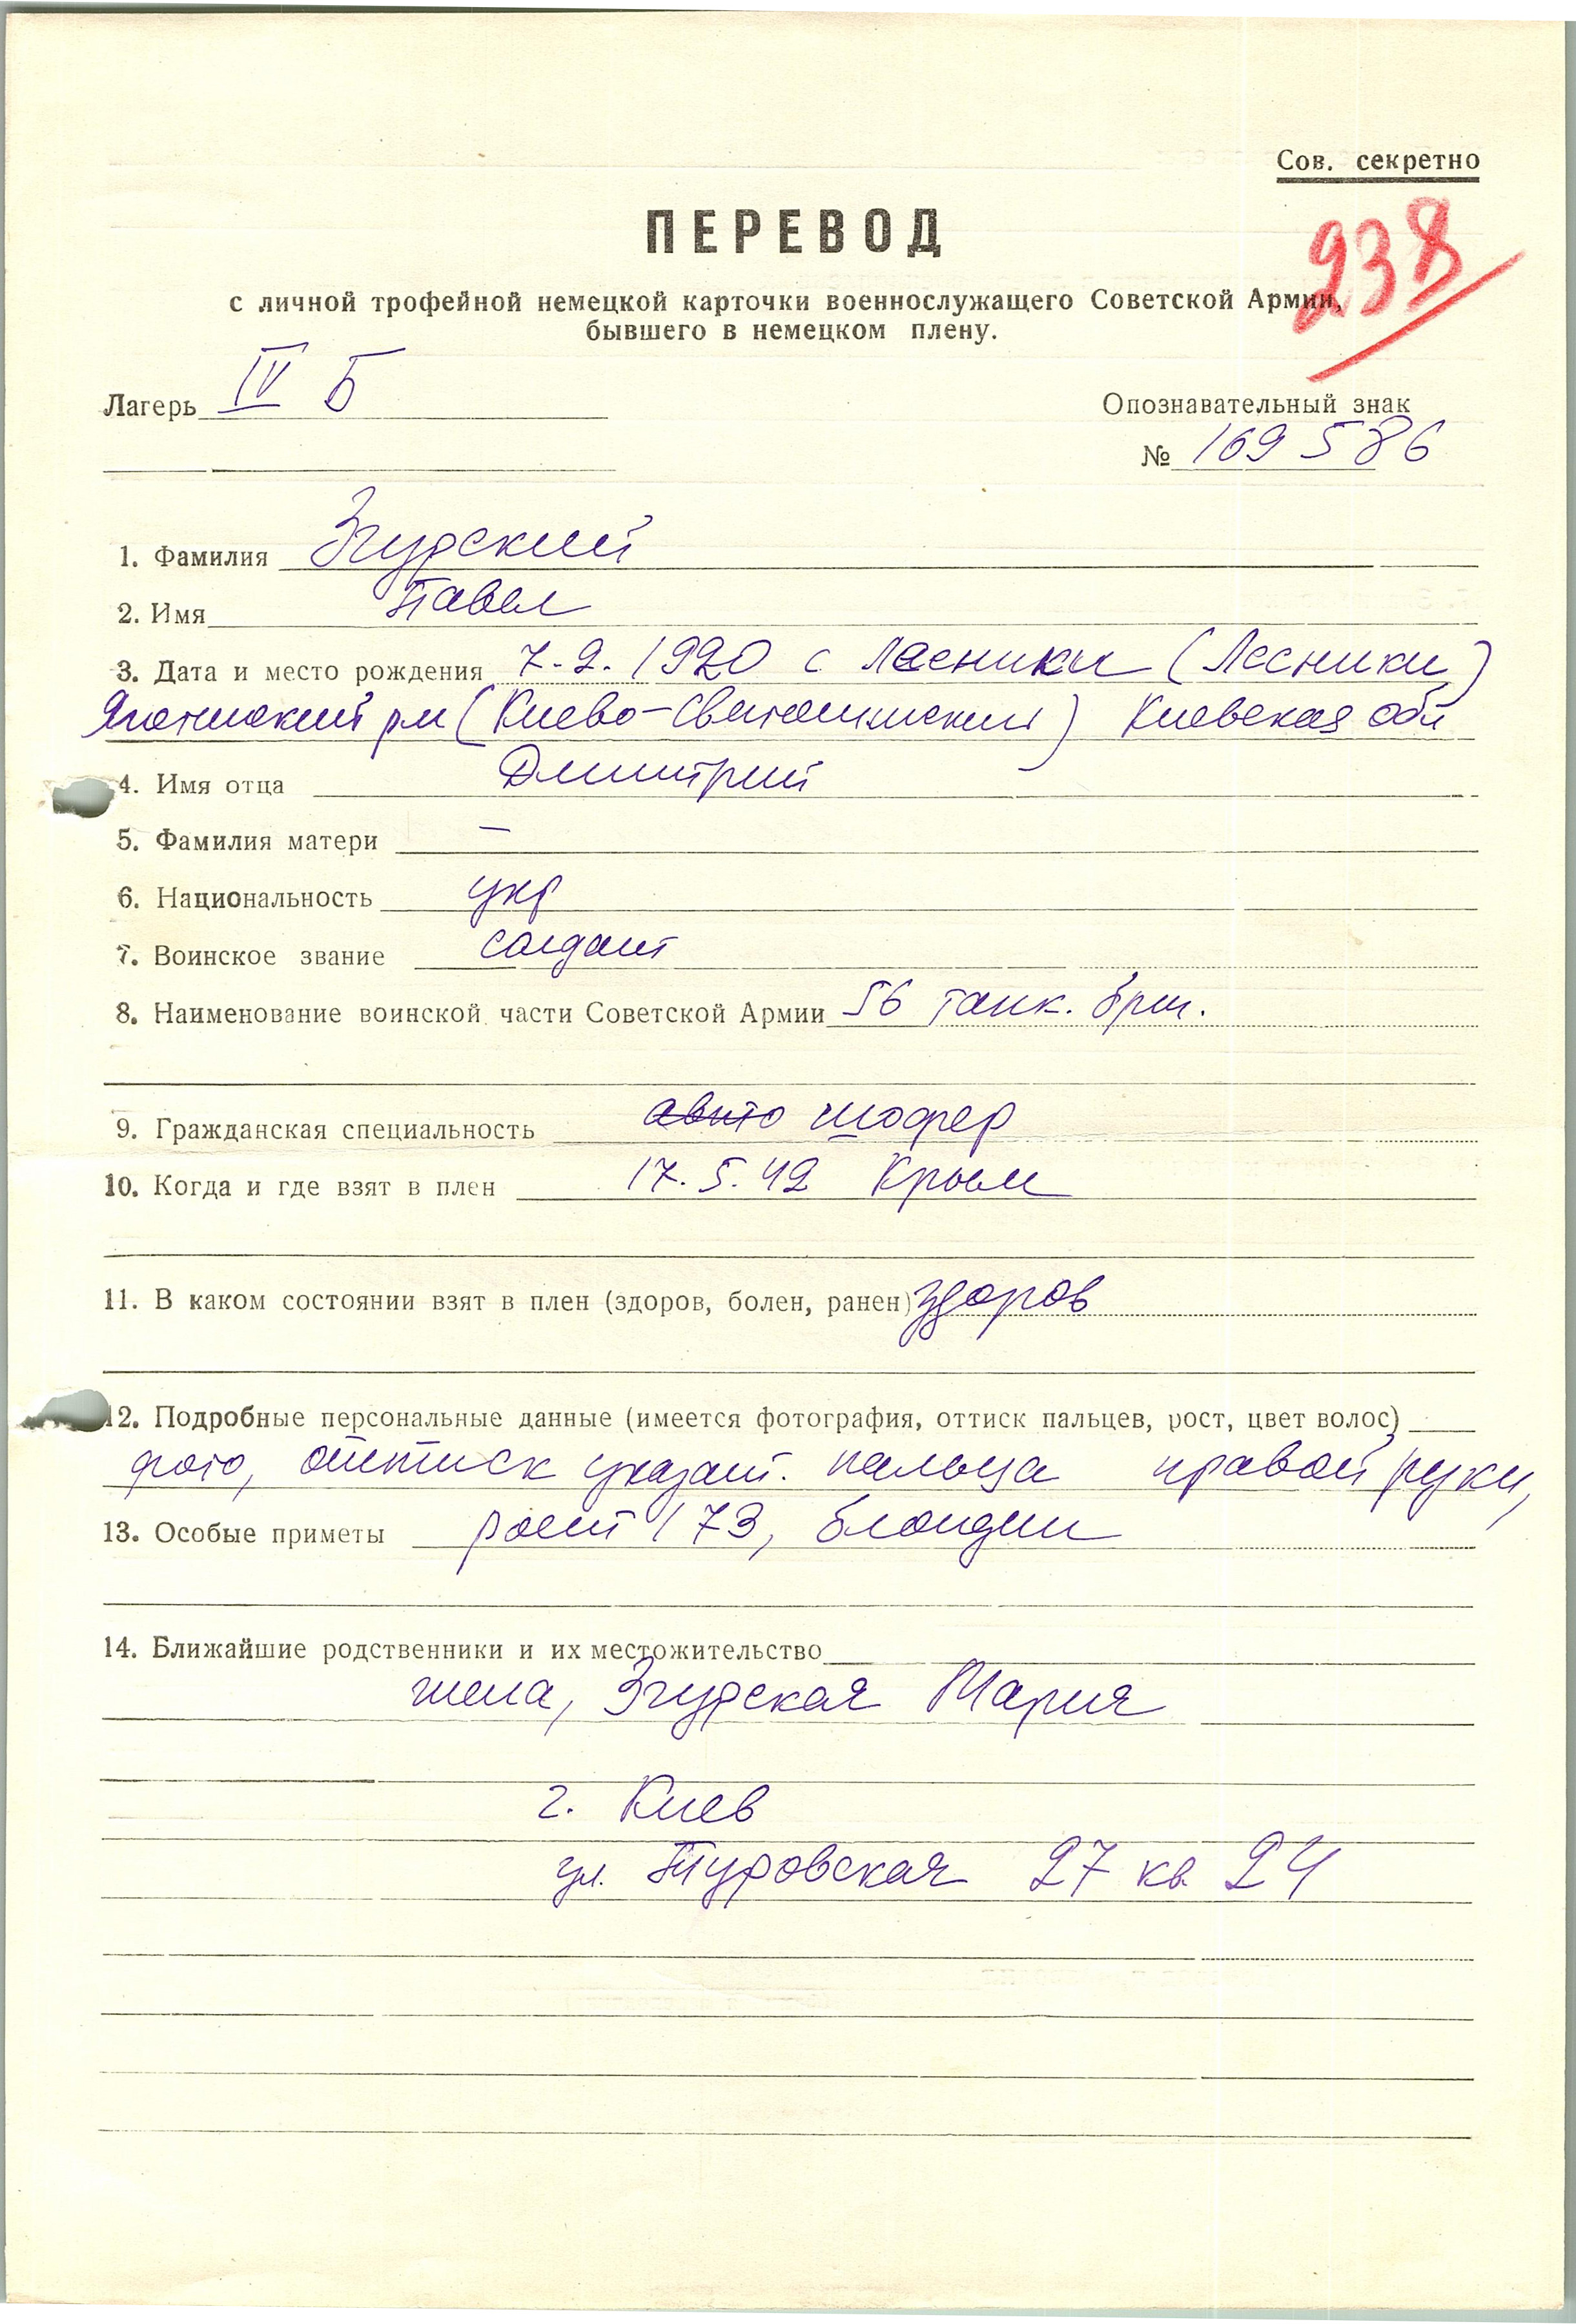 Сов. секретно
ПЕРЕВОД
238
с личной трофейной немецкой карточки военнослужащего Советской Армии,
бывшего в немецком плену.
Лагерь IV Б
Опознавательный знак
№ 169586
1. Фамилия Згурский
2. Имя Павел
3. Дата и место рождения 7.2.1920 с Лесники (Лесники)
(Киево-Святошинский) Киевская обл
4. Имя отца Дмитрий
5. Фамилия матери —
6. Национальность укр
7. Воинское звание солдат
8. Наименование воинской части Советской Армии 56 танк. бриг.
9. Гражданская специальность авто шофер
10. Когда и где взят в плен 17.5.42 Крым
11. В каком состоянии взят в плен (здоров, болен, ранен) здоров
12. Подробные персональные данные (имеется фотография, оттиск пальцев, рост, цвет волос)
фото, оттиск указат. пальца правой руки,
13. Особые приметы рост 173, блондин
14. Ближайшие родственники и их местожительство
жена, Згурская Мария
г. Киев
ул. Туровская 27 кв 24